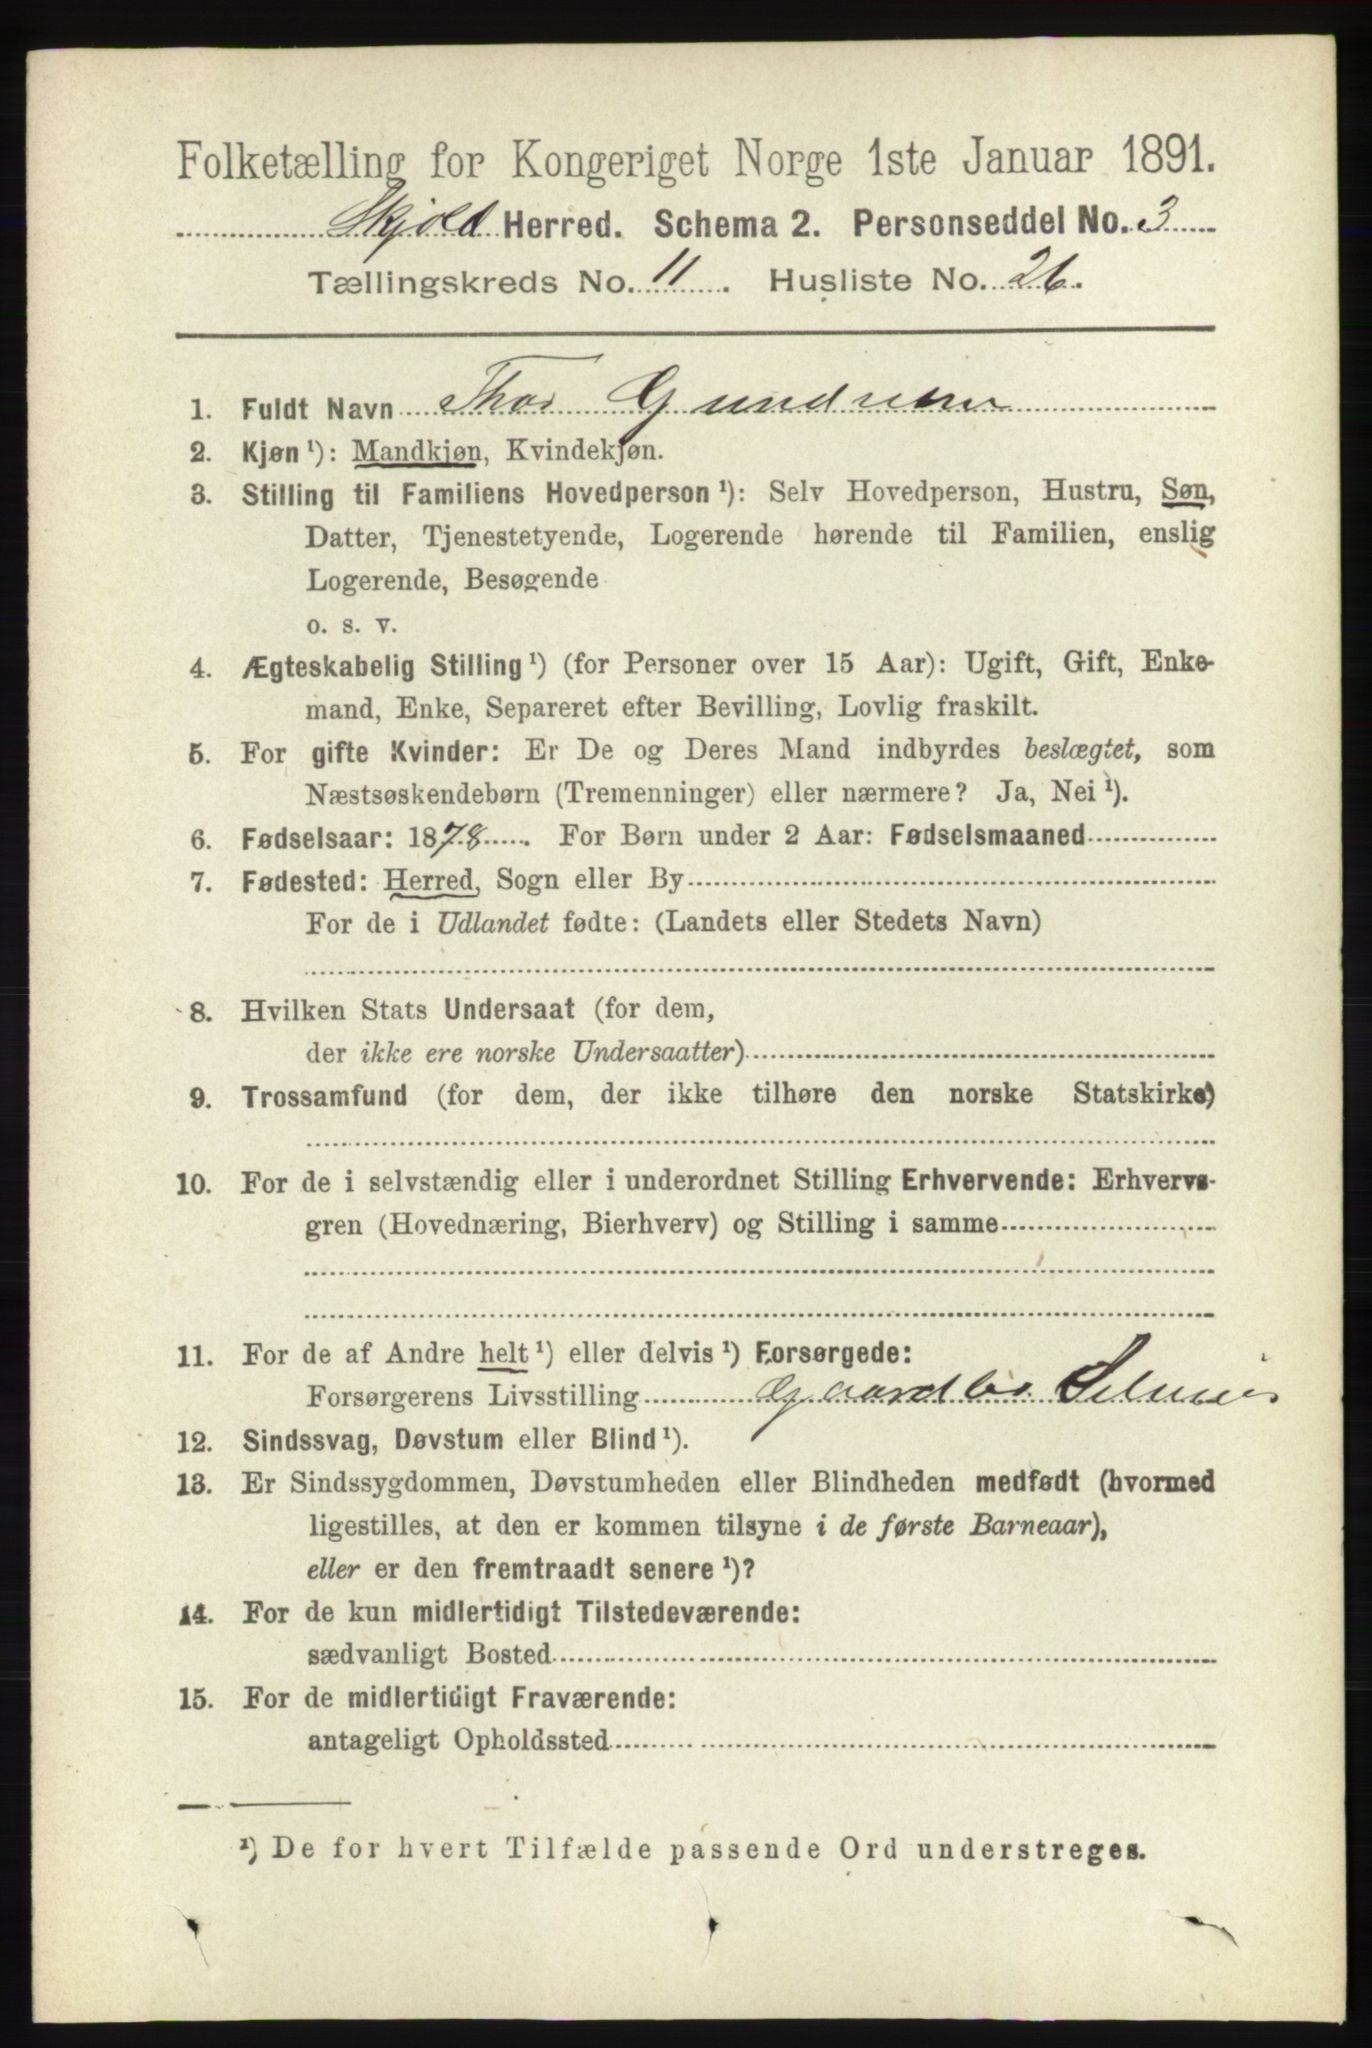 Folketælling for Kongeriget Norge 1ste Januar 1891.
Skjold Herred. Schema 2. Personseddel No. 3
Tællingskreds No. 11. Husliste No. 26.
1. Fuldt Navn Thor
2. Kjøn ¹): Mandkjøn, Kvindekjøn.
3. Stilling til Familiens Hovedperson ¹): Selv Hovedperson, Hustru, Søn,
Datter, Tjenestetyende, Logerende hørende til Familien, enslig
Logerende, Besøgende
o. s. v.
4. Ægteskabelig Stilling ¹) (for Personer over 15 Aar): Ugift, Gift, Enke-
mand, Enke, Separeret efter Bevilling, Lovlig fraskilt.
5. For gifte Kvinder: Er De og Deres Mand indbyrdes beslægtet, som
Næstsøskendebørn (Tremenninger) eller nærmere? Ja, Nei ¹).
6. Fødselsaar: 1878. For Børn under 2 Aar: Fødselsmaaned
7. Fødested: Herred, Sogn eller By
For de i Udlandet fødte: (Landets eller Stedets Navn)
8. Hvilken Stats Undersaat (for dem,
der ikke ere norske Undersaatter)
9. Trossamfund (for dem, der ikke tilhøre den norske Statskirke)
10. For de i selvstændig eller i underordnet Stilling Erhvervende: Erhvervs-
gren (Hovednæring, Bierhverv) og Stilling i samme
11. For de af Andre helt ¹) eller delvis ¹) Forsørgede:
Forsørgerens Livsstilling Gaardbr.
12. Sindssvag, Døvstum eller Blind ¹).
13. Er Sindssygdommen, Døvstumheden eller Blindheden medfødt (hvormed
ligestilles, at den er kommen tilsyne i de første Barneaar),
eller er den fremtraadt senere ¹)?
14. For de kun midlertidigt Tilstedeværende:
sædvanligt Bosted
15. For de midlertidigt Fraværende:
antageligt Opholdssted
¹) De for hvert Tilfælde passende Ord understreges.